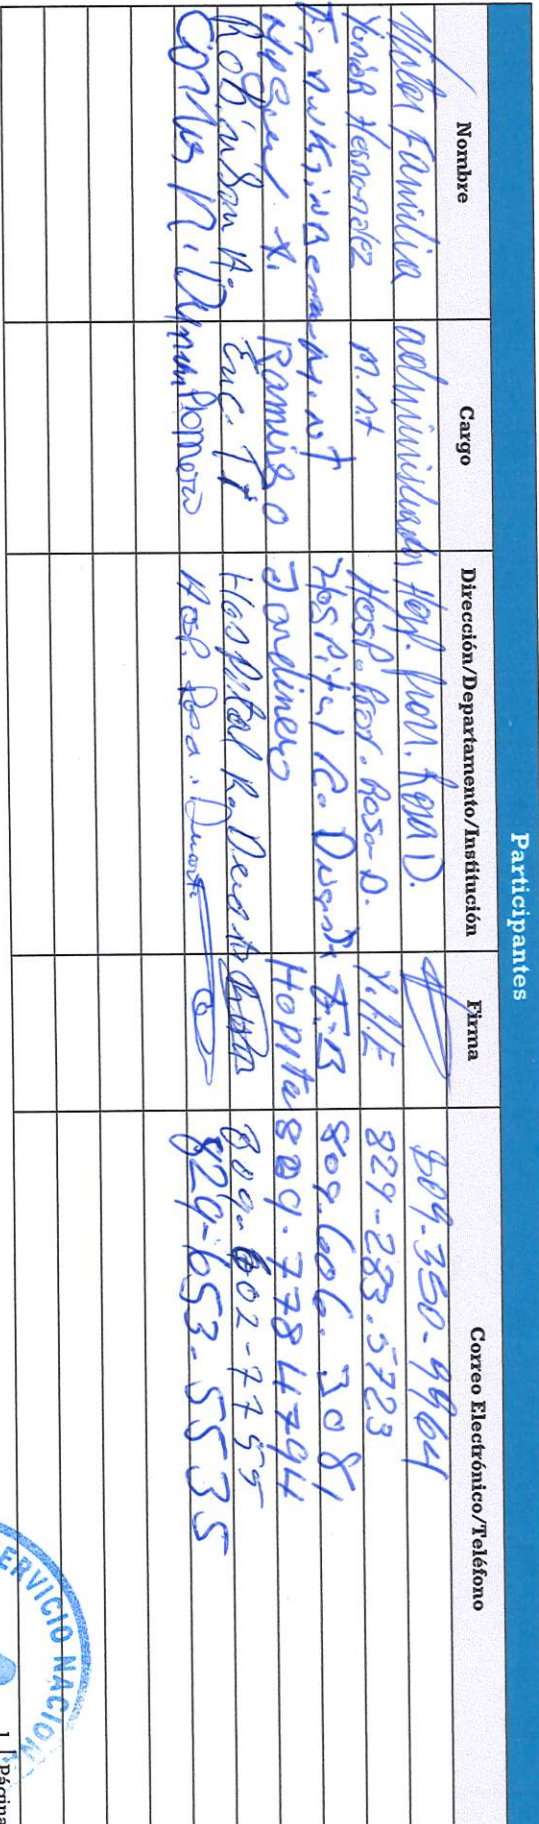 Participantes
Nombre Cargo Dirección/Departamento/Institución Firma Correo Electrónico/Teléfono
Familia administrador Hosp. Prov. Rosa D. 809-350-9964
Yunior Hernandez M.nt Hosp. Prov. Rosa D. Y.H.E 829-283-5723
M.nt Hospital R. Duarte 809.606.3081
Miguel X. Ramires O Jardinero Hopital 809.778 4794
Robinson A. Enc. TI Hospital R. Duarte 809-602-7755
Carlos R. Romero Hosp. Rosa. Duarte 829-653-5535
SERVICIO NACION
1 | Página